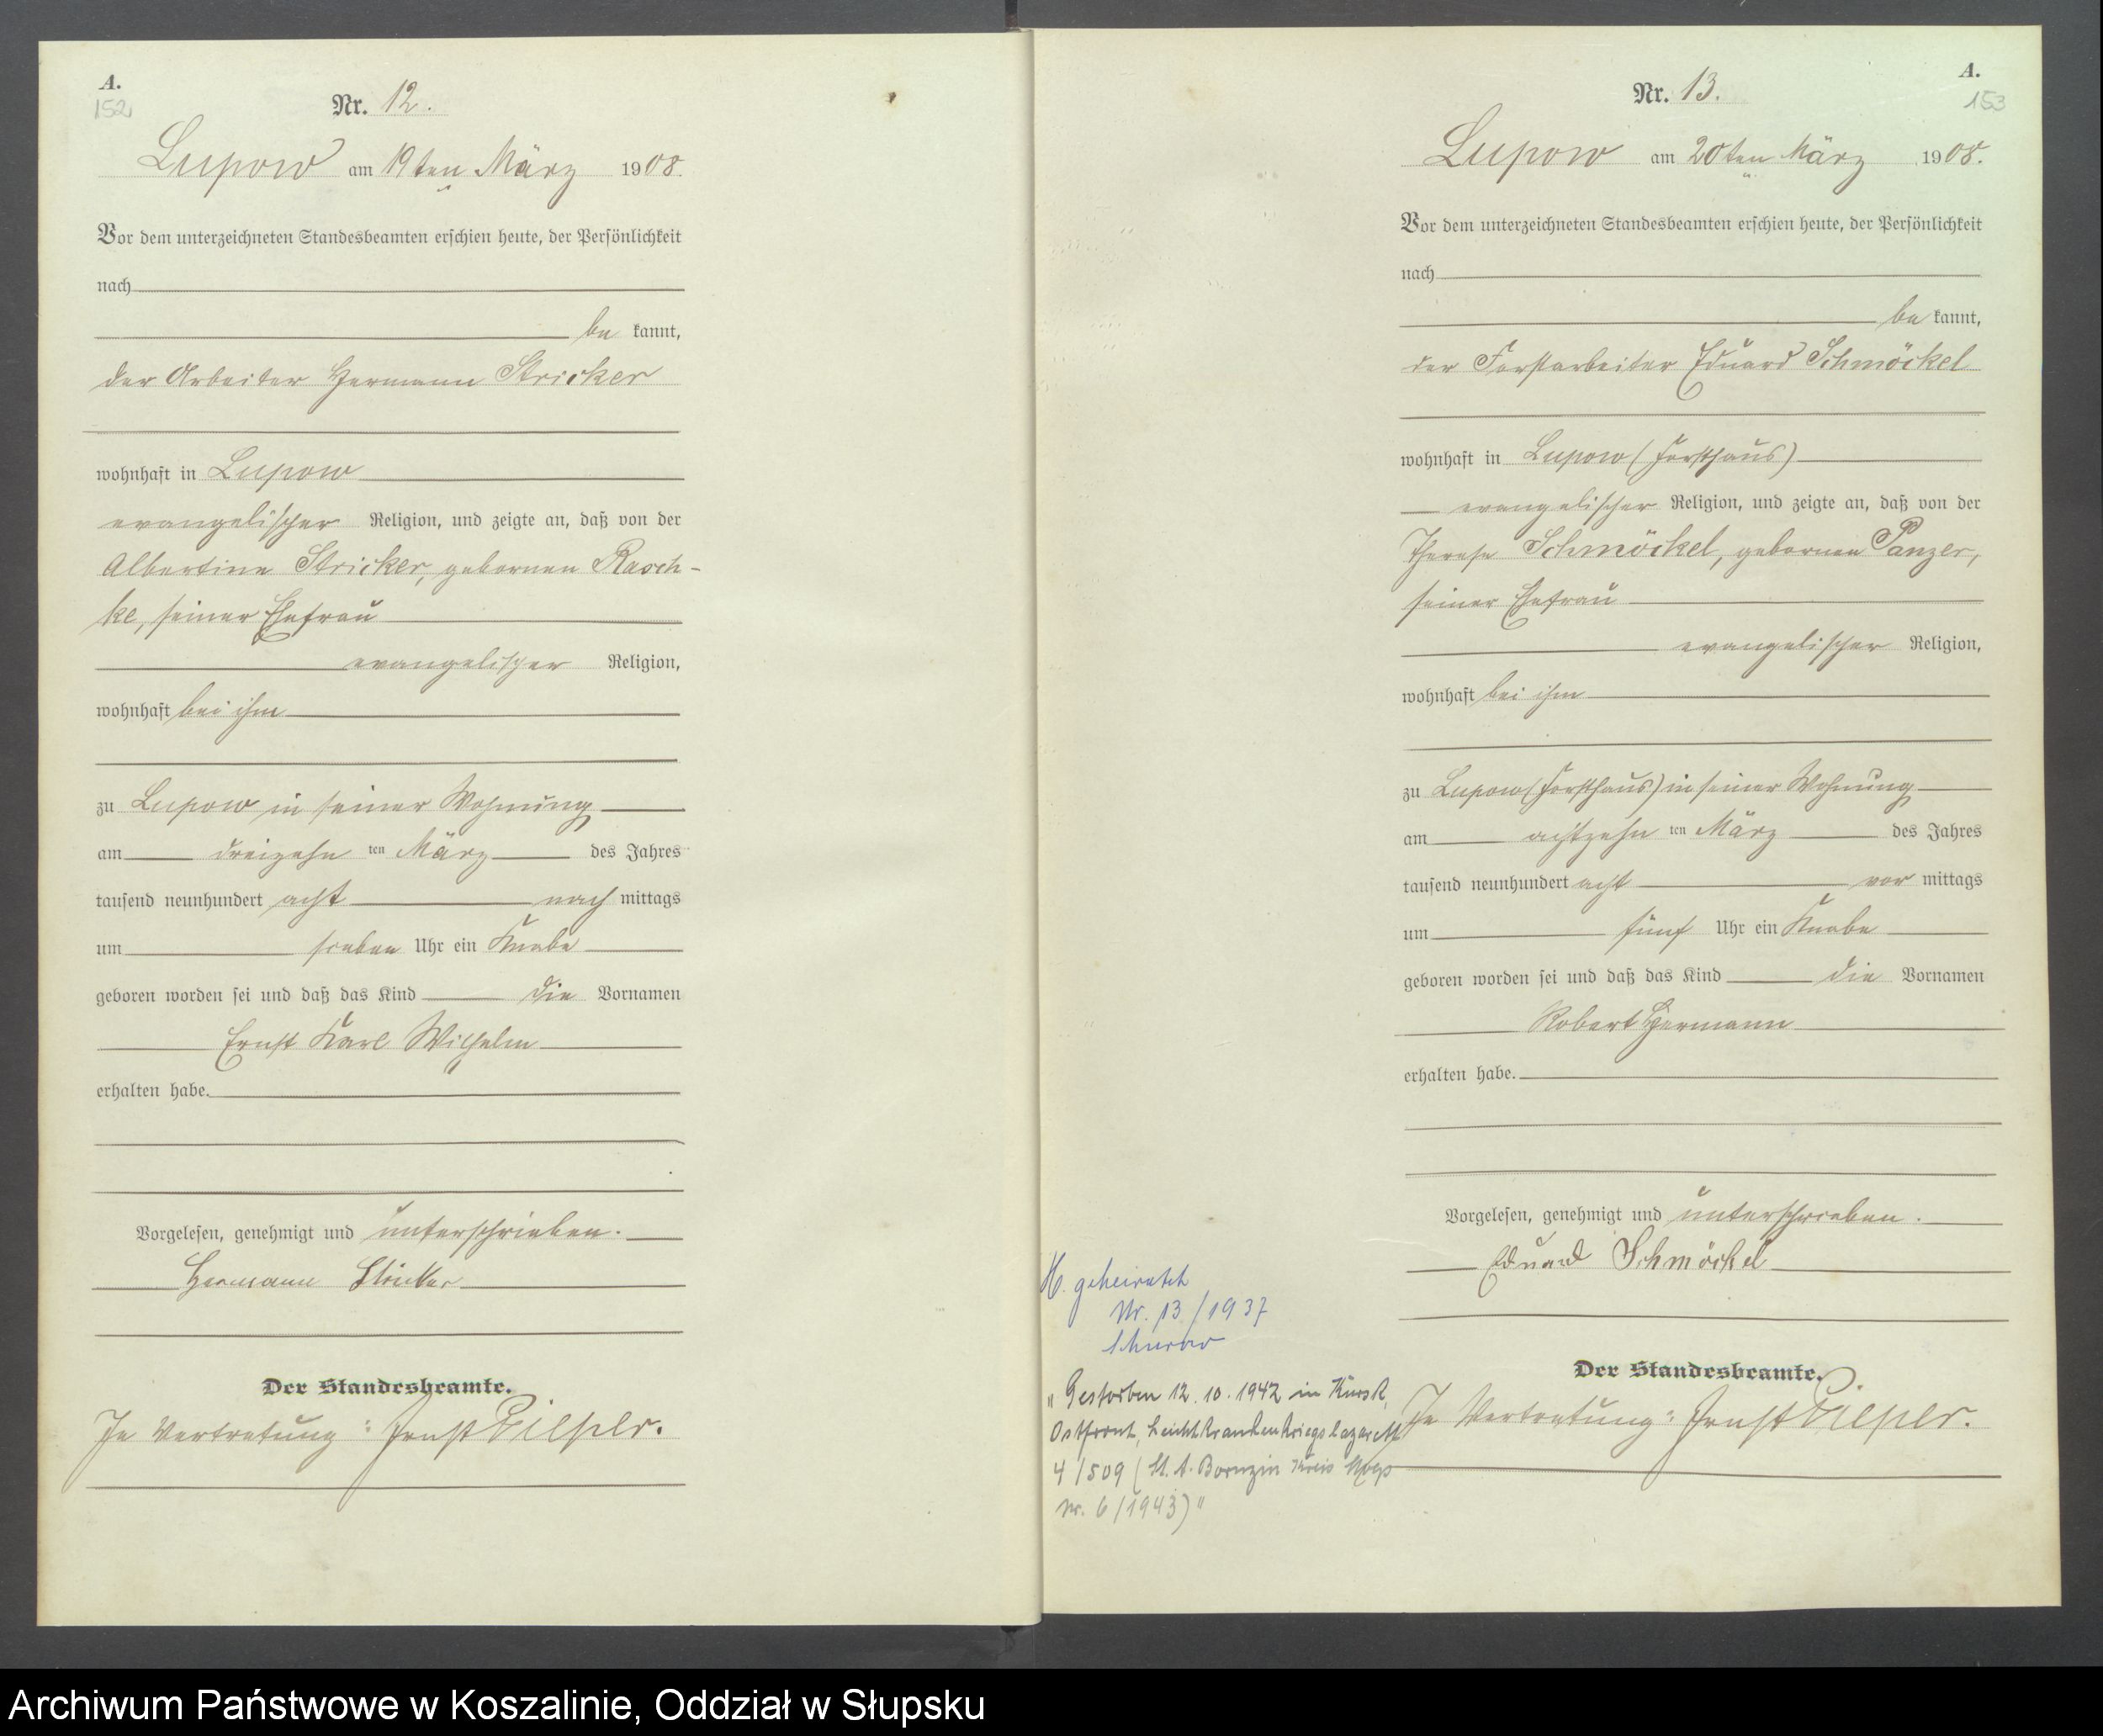 A.
152
Nr. 12.
Lupow am 19ten März 1908.
Vor dem unterzeichneten Standesbeamten erschien heute, der Persönlichkeit
nach
be kannt,
der Arbeiter Hermann Stricker
wohnhaft in Lupow
evangelischer Religion, und zeigte an, daß von der
Albertine Stricker, gebornen Rasch-
ke, seiner Ehefrau
evangelischer Religion,
wohnhaft bei ihm
zu Lupow in seiner Wohnung
am dreizehn ten März des Jahres
tausend neunhundert acht nach mittags
um sieben Uhr ein Knabe
geboren worden sei und daß das Kind die Vornamen
Ernst Karl Wilhelm
erhalten habe.
Vorgelesen, genehmigt und unterschrieben.
Hermann Stricker
Der Standesbeamte.
In Vertretung: Ernst Pieper.
A.
153
Nr. 13.
Lupow am 20ten März 1908.
Vor dem unterzeichneten Standesbeamten erschien heute, der Persönlichkeit
nach
be kannt,
der Forstarbeiter Eduard Schmöckel
wohnhaft in Lupow (Forsthaus)
evangelischer Religion, und zeigte an, daß von der
Therese Schmöckel, gebornen Panzer,
seiner Ehefrau
evangelischer Religion,
wohnhaft bei ihm
zu Lupow (Forsthaus) in seiner Wohnung
am achtzehn ten März des Jahres
tausend neunhundert acht vor mittags
um fünf Uhr ein Knabe
geboren worden sei und daß das Kind die Vornamen
Robert Hermann
erhalten habe.
Vorgelesen, genehmigt und unterschrieben.
Eduard Schmöckel
Der Standesbeamte.
In Vertretung: Ernst Pieper.
H. geheiratet
Nr. 13/1937
Schurow
"Gestorben 12.10.1942 in Kursk,
Ostfront, Leichtkrankenkriegslazarett
4/509 (St. A. Bornzin Kreis Stolp
Nr. 6/1943)"
Archiwum Państwowe w Koszalinie, Oddział w Słupsku